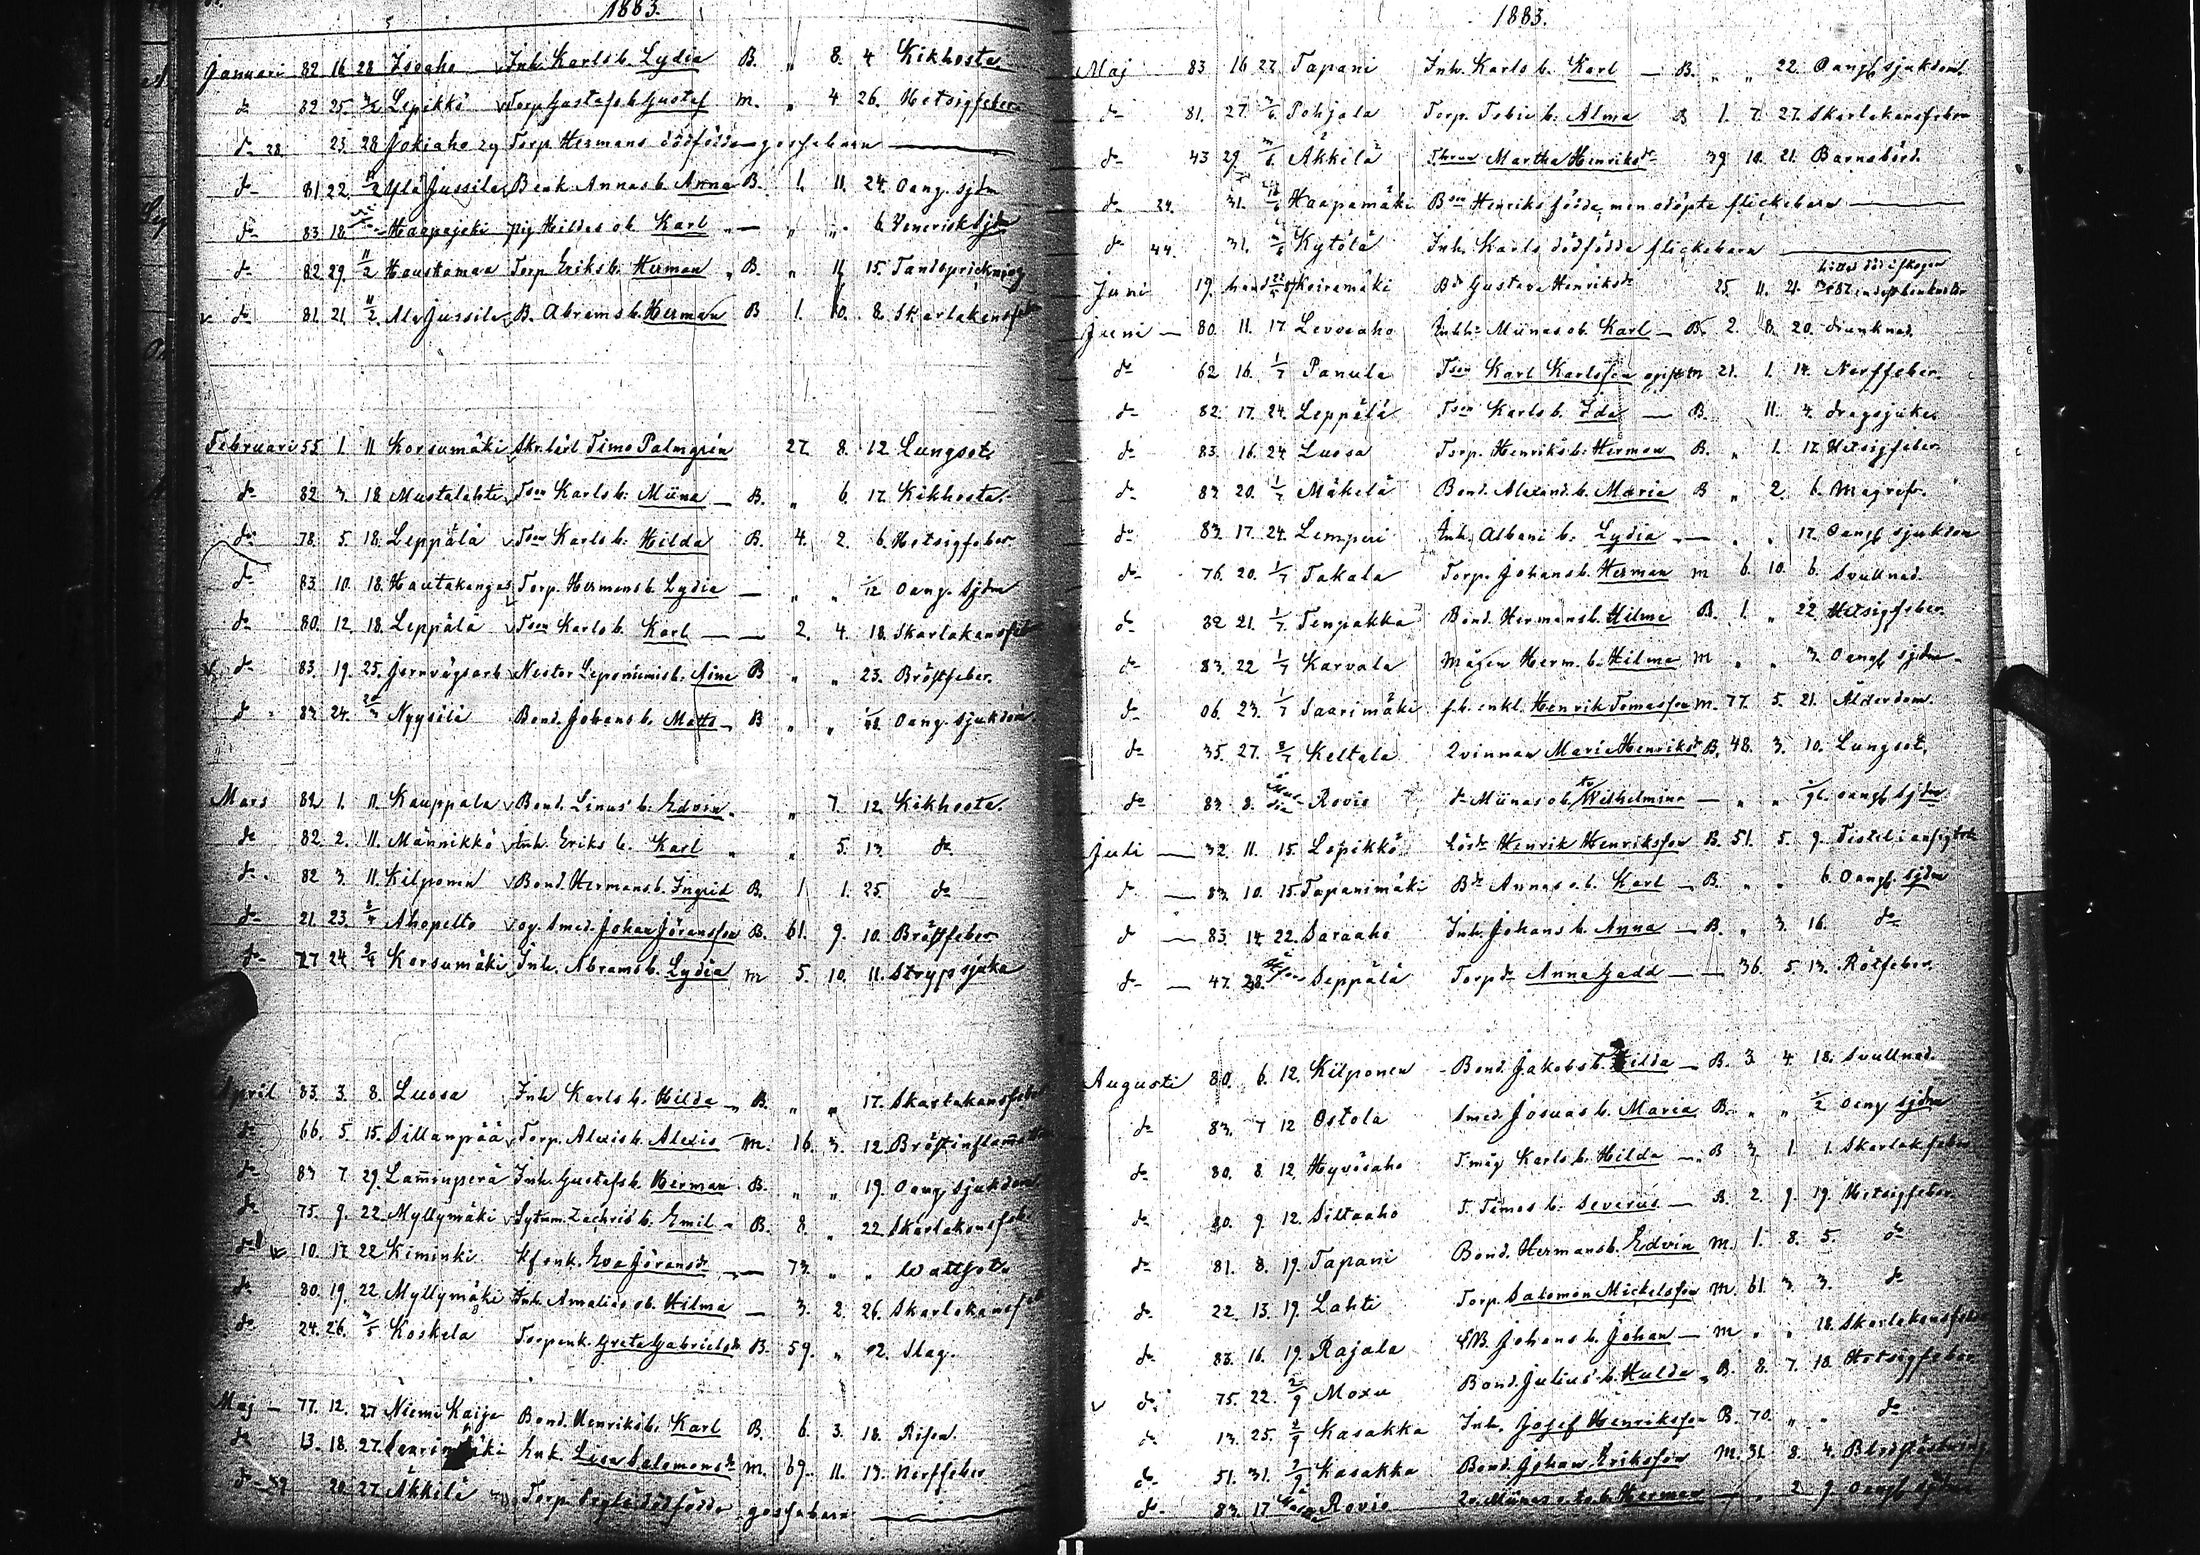 1883.
Januari 82 16 28 Isoaho Inh. Karls b. Lydia B. " 8. 4 Kikhosta
do 82 25. Lepikkö Torp. Gustafs b. Gustaf m. " 4 26. Hetsigfeber
do 28. 23 28 Jokiaho Torp. Hermans dödfödde gossebarn
do 81 22. 11/2 Ylä Jussila Annas b. Anna B. 1. 11. 24. Oang. sjdm
do 83. 18. Haapajoki pig. Hildas ob. Karl " " 6 Venerisk sjdm
do 82. 29. 11/2 Haustamaa Torp. Eriks b. Herman B. " 11 15. Tandsprickning
do 81. 21. 11/2 Ala Jussila B. Abrams b. Herman B 1. 10. 8. Skarlakansfeb
Februari 55. 1. 11 Korsumäki Timo Palmgrén 27. 8. 12 Lungsot
do 82 3. 18 Mustalahti Tson Karls b. Miina B. " 6. 17. Kikhosta
do 78. 5. 18. Leppälä Tson Karls b. Hilda B. 4. 2. 6. Hetsigfeber
do 83 10. 18. Hautakangas Torp. Hermans b. Lydia " " 1/12 Oang. sjdm
do 80. 12. 18. Leppälä Tson Karls b. Karl 2. 4. 18. Skarlakansfeb
do 83. 19. 25. Jernvägsarb Nestor b. Aina B " " 23. Bröstfeber.
do 83 24. Nyysilä Bond. Johans b. Matts B " " Oang. sjukdom
Mars 82 1. 11. Kauppala Bond. Linus' b. Edvin. " 7. 12. Kikhosta.
do 82. 2. 11. Männikkö Inh. Eriks b. Karl " " 5. 13. do
do. 82 3. 11. Kilponen Bond. Hermans b. Ingrid B. 1 1. 25. do
do 21. 23. Ahopelto Smed. Johan Jöransson B. 61. 9. 10. Bröstfeber
do 77 24. Korsumäki Inh. Abrams b. Lydia m 5. 10. 11. Strypsjuka
April 83. 3. 8. Luosa Inh. Karls b. Hilda B. " " 17. Skarlakansfeber
do 66. 5. 15. Sillanpää Torp. Alexis b. Alexis m. 16. 3. 12 Bröstinflam
do 83 7. 29. Lam̄inperä Inh. Gustafs b. Herman B. " " 19. Oang. sjukdom
do 75. 9. 22. Myllymäki Sytnm. Zachris b. Emil B. 8. " 22. Skarlakansfeb
do 10. 17 22 Kiminki enk. Eva Jöransdr 73. " " Wattsot
do 80. 19. 22 Myllymäki Inh. Amalias ob. Hilma 3. 2. 26. Skarlakansfeb
do 24. 26. Koskela Torpenk. Greta Gabrielsdr B. 59. " Slag.
Maj 77. 12. 27 Niemi Kaija Bond. Henriks b. Karl B. 6. 3. 18. Risen
do 13. 18. 27. Enk. Lisa Salomonsdr m. 69. 11. 13. Nerffeber
do 20. 27. Äkkilä Torp. dödfödde gossebarn
1883.
Maj 83 16 27. Tapani Inh. Karls b. Karl B. " " 22. Oangf. sjukdom
do 81. 27. Pohjala Torp. Tobias b. Alma B 1. 7. 27. Skarlakansfeber
do 43 29. Äkkilä Martha Henriksdr 39. 10. 21. Barnsbörd.
do 24. 31. Haapamäki Bson Henriks födde, men odöpte flickebarn
do 44. 31. Kytölä Inh. Karls dödfödda flickebarn
Juni 19. Koiramäki Bdr Gustava Henriksdr 25. 11. 21.
Juni 80. 11. 17 Levoaho Miinas ob. Karl B. 2. 8. 20. drunknad.
do 62 16. 1/7 Panula Tson Karl Karlsson ogift m 21. 1. 14. Nerffeber.
do 82. 17. 24. Leppälä Tson Karls b. Ida B. 11. 4. dragsjuka
do 83. 16. 24 Luosa Torp. Henriks b. Herman B. " 1. 17. Hetsigfeber
do 83 20. 1/7 Mäkelä Bond. Alexand. b. Maria B " 2. 6. Magref.
do 83. 17. 24. Lemperi Inh. Albani b. Lydia " " 17. Oangf sjukdom
do 76. 20. 1/7 Takala Torp. Johans b. Herman m 6. 10. 6. Svullnad.
do 82 21. 1/7 Tenpakka Bond. Hermans b. Hilma B. 1. " 22 Hetsigfeber
do 83. 22 1/7 Karvala Mågen Herm. b. Hilma M " " 3. Oangf sjdm
do 06. 23. 1/7 Saarimäki enkl. Henrik Tomasson m. 77. 5. 21. Ålderdom.
do 35. 27. 8/7 Keltala Qvinnan Maria Henriksdr B. 48. 3. 10. Lungsot.
do 83. 8. Rovio do Miinas ob. Wilhelmina " " oangf sjdm
Juli 32. 11. 15. Lepikkö Henrik Henriksson B. 51. 5. 9. Fistel i ansigtet
do 83. 10. 15. Tapanimäki Bdr Annas o.b. Karl B. " " 6. Oangf. sjdm
do 83. 14. 22. Saraaho Inh. Johans b. Anna B. " 3. 16. do
do 47. 28. Seppälä Torpdr Anna Gadd 36. 5. 13. Rötfeber.
Augusti 80. 6. 12. Kilponen Bond. Jakobs b. Hilda B. 3. 4 18. Svullnad.
do 83. 7 12 Ostola Smed. Josuas b. Maria B. " " 1/2 Oang sjdm
do 80. 8. 12. Hyvösaho Tmåg Karls b. Hilda B 3. 1. 1. Skarlakfeber
do 80. 9. 12. Siltaaho T. Timos b. Severus B. 2. 9. 19. Hetsigfeber
do 81. 8. 19. Tapani Bond. Hermans b. Edvin M. 1. 8. 5. do
do 22. 13. 19. Lahti Torp. Salomon Mickelsson M. 61. 3. 3. do
do 83. 16. 19. Rajala Johans b. Johan M " " 18. Skarlakansfeb
do 75. 22. 2/9 Moxu Bond. Julius' b. Hulda B. 8. 7. 10. Hetsigfeber
do 13. 25. 2/9 Kasakka Inh. Josef Henriksson B. 70. " " do
do 51. 31. 2/9 Kasakka Bond. Johan Eriksson M. 31. 8. 4.
do 83. 17 Rovio Miinas b. Herman " 2 9. Oangf sjdm